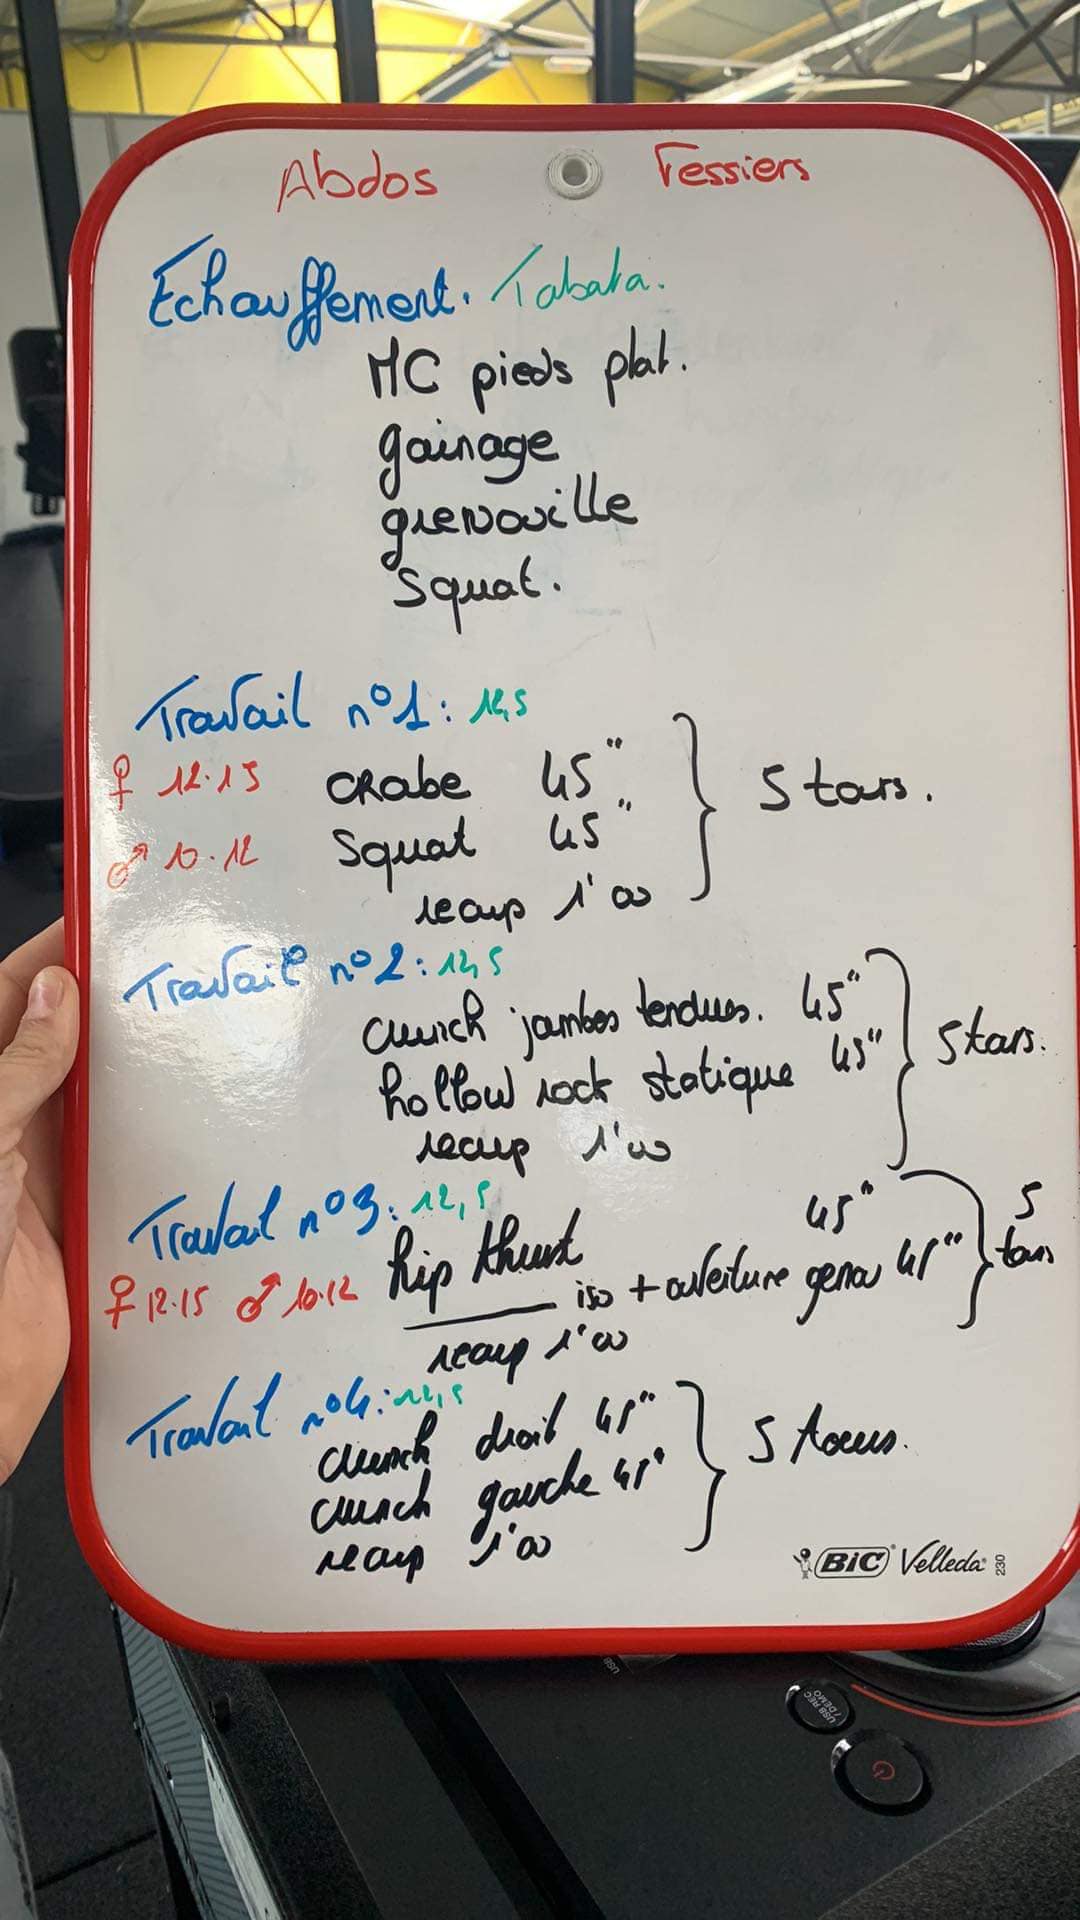 Abdos Fessiers
Echauffement. Tabata.
MC pieds plat.
gainage
grenouille
Squat.
Travail n°1: 12,5
♀ 12.15 crabe 45"
♂ 10.12 Squat 45" } 5 tours.
recup 1'00
Travail n°2: 12,5
crunch jambes tendues. 45"
hollow rock statique 45" } 5 tours.
recup 1'00
Travail n°3: 12,5
♀ 12.15 ♂ 10.12 hip thrust 45"
____ iso + ouverture genou 45" } 5 tours
recup 1'00
Travail n°4: 12,5
crunch droit 45"
crunch gauche 45" } 5 tours.
recup 1'00
BIC Velleda 230
USB
USB REC / DEMO